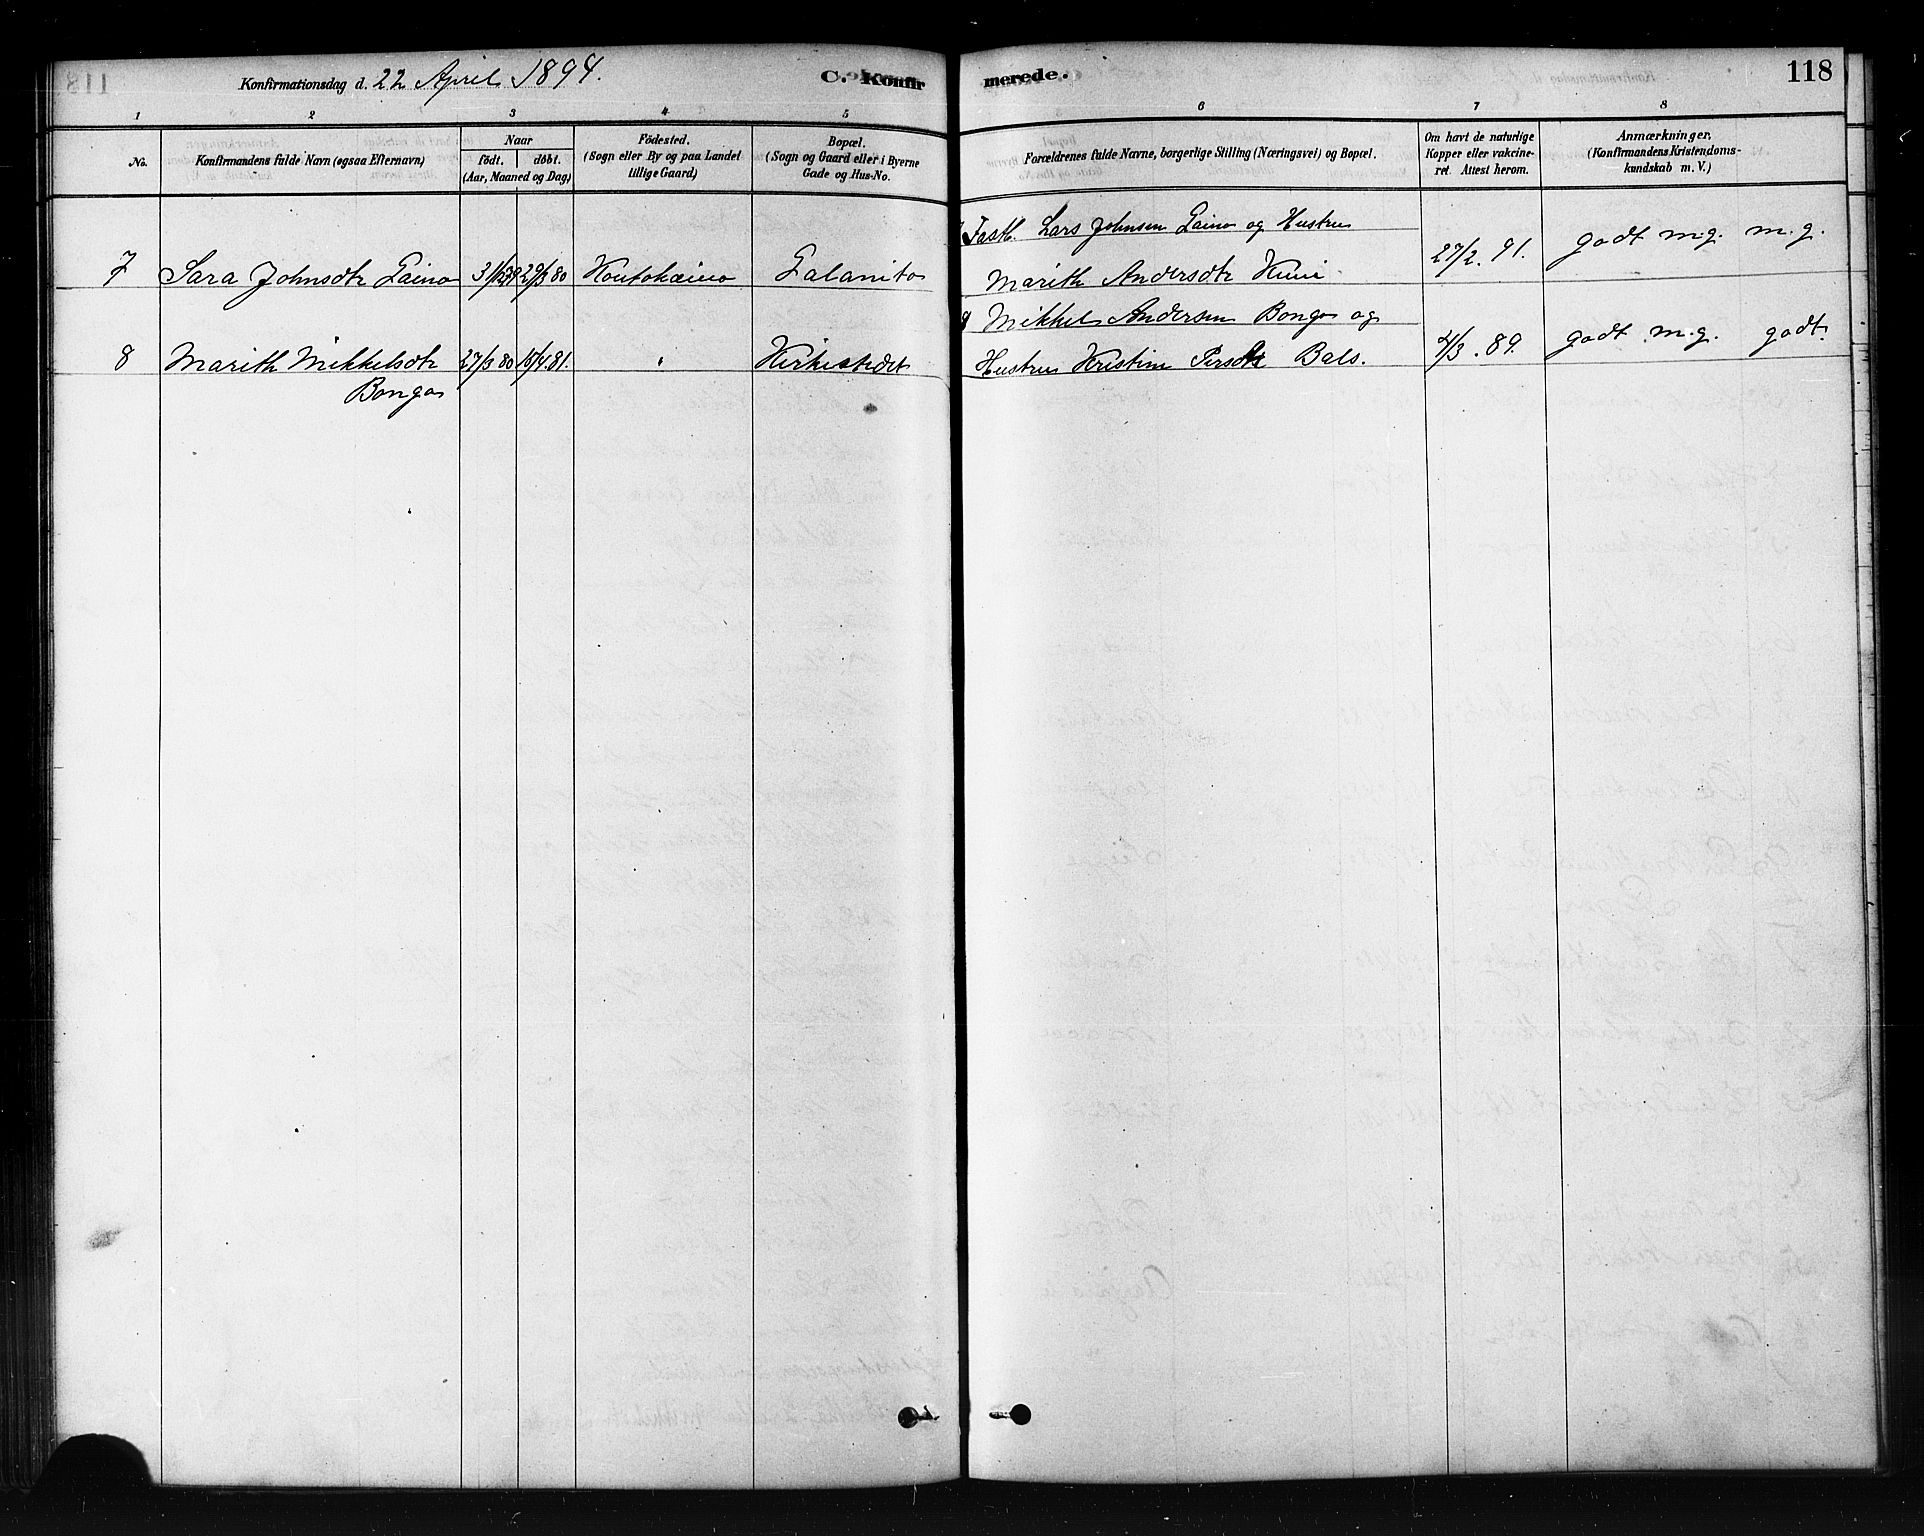 Konfirmationsdag d. 22 April 1894.
C. Konfir
merede.
118
1 2 3 4 5 6 7 8
No.
Konfirmandens fulde Navn (ogsaa Efternavn)
Naar
födt. döbt.
(Aar, Maaned og Dag)
Födested.
(Sogn eller By og paa Landet
tillige Gaard)
Bopæl.
(Sogn og Gaard eller i Byerne
Gade og Hus-No.
Forældrenes fulde Navne, borgerlige Stilling (Næringsvei) og Bopæl.
Om havt de naturlige
Kopper eller vakcine-
ret. Attest herom.
Anmærkninger,
(Konfirmandens Kristendoms-
kundskab m. V.)
7 Sara Johnsdtr Gaino 29/3 80 Koutokæino Galanito
Fastb. Lars Johnsen Gaino og Hustru
Marith Andersdtr
27/2. 91. godt m.g. m.g.
8 Marith Mikkelsdtr
Bongo
27/3 80 " Kirkestedet
Mikkel Andersen Bongo og
Hustru Kristine Persdtr Bals.
/3. 89. godt m.g. godt.